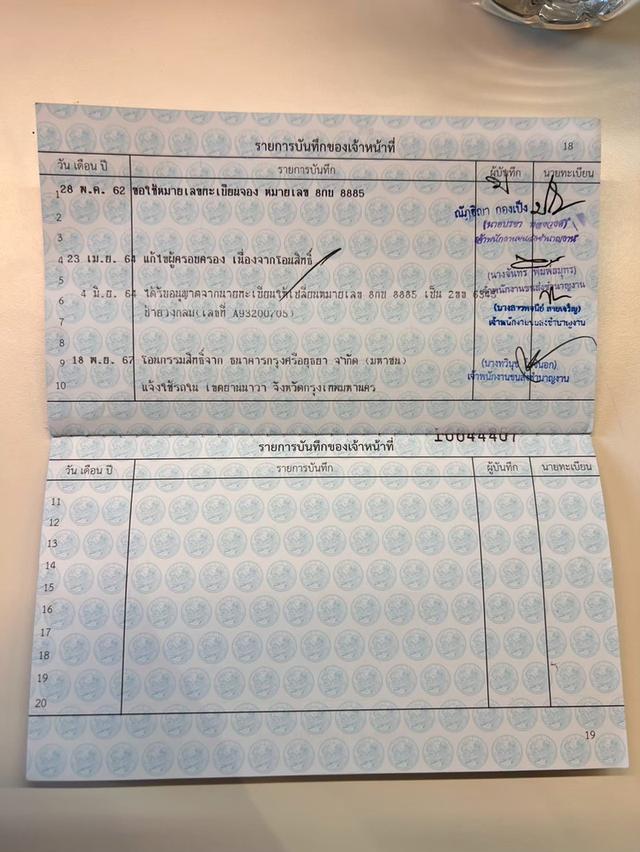 รายการบันทึกของเจ้าหน้าที่ 18
วัน เดือน ปี รายการบันทึก ผู้บันทึก นายทะเบียน
1 28 พ.ค. 62 ขอใช้หมายเลขทะเบียนจอง หมายเลข 8กบ 8885
2
ณัฏฐิตา กองแป้ง
เจ้าพนักงานขนส่งชำนาญงาน
3
4 23 เม.ย. 64 แก้ไขผู้ครอบครอง เนื่องจากโอนสิทธิ์
5
(นางจันทร พิมพ์สมุทร)
เจ้าพนักงานขนส่งชำนาญงาน
6 4 มิ.ย. 64 ได้รับอนุญาตจากนายทะเบียนให้เปลี่ยนหมายเลข 8กบ 8885 เป็น 2ขข
7 ป้ายวงกลม(เลขที่ A93200705)
เจ้าพนักงานขนส่งชำนาญงาน
8
9 18 พ.ย. 67 โอนกรรมสิทธิ์จาก ธนาคารกรุงศรีอยุธยา จำกัด (มหาชน)
เจ้าพนักงานขนส่งชำนาญงาน
10 แจ้งใช้รถใน เขตยานนาวา จังหวัดกรุงเทพมหานคร
รายการบันทึกของเจ้าหน้าที่ 10044407
วัน เดือน ปี รายการบันทึก ผู้บันทึก นายทะเบียน
11
12
13
14
15
16
17
18
19
20
19